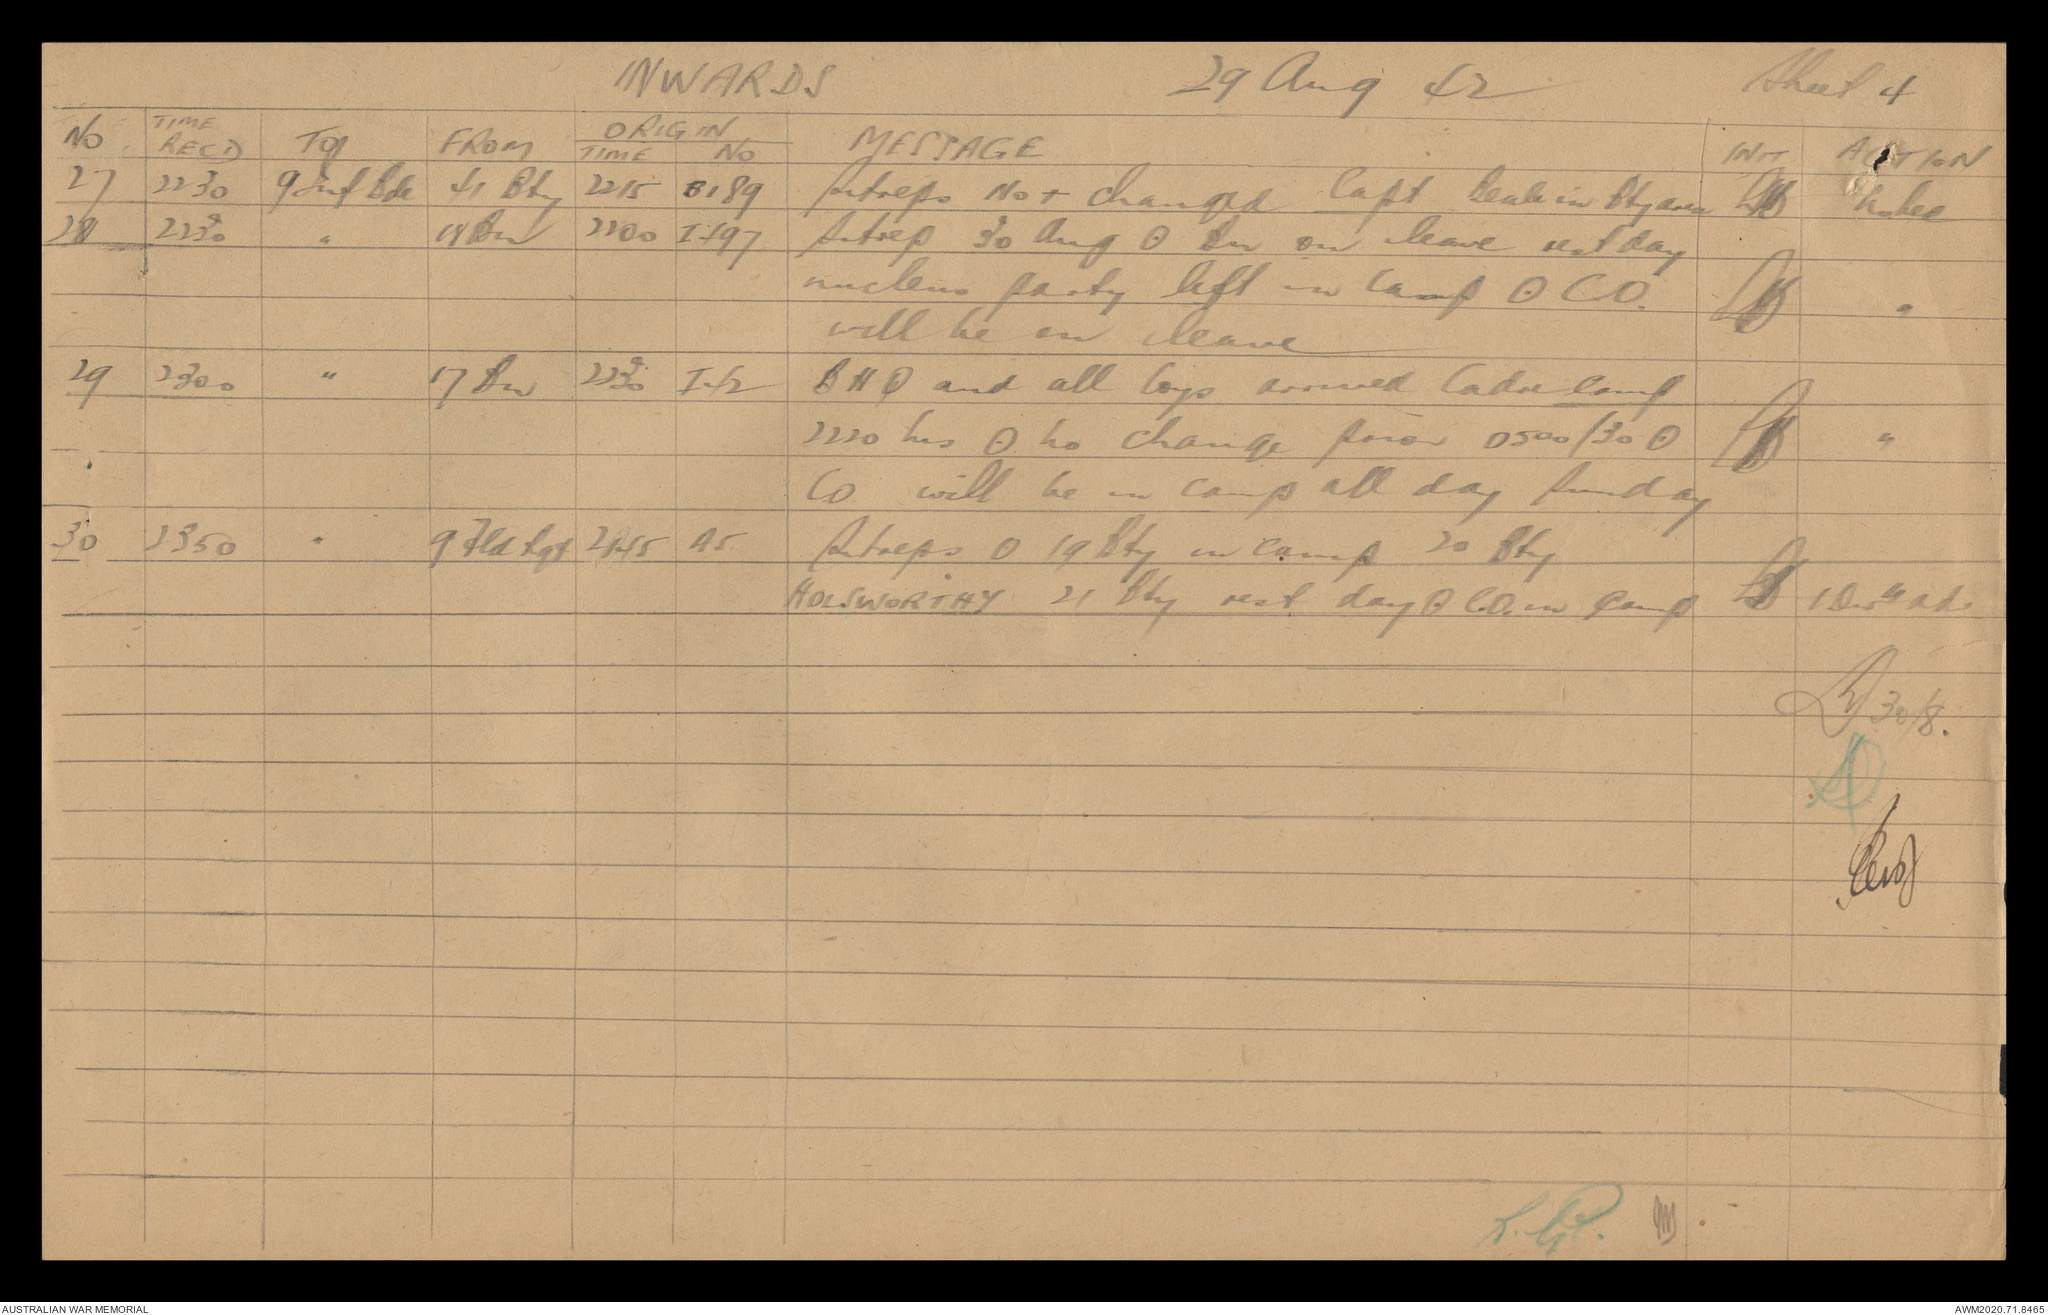 INWARDS 29 Aug 42 Sheet 4
NO TIME RECD TO FROM ORIGIN TIME NO MESSAGE INIT ACTION
27 2230 9 Inf Bde 41 Bty 2215 B189 Sitreps Not changed Capt in Bty area Noted
28 2230 " 18 Bn 2200 I497 Sitrep 30 Aug O Bn on leave rest day
nucleus party left in camp O CO. "
will be on leave
29 2300 " 17 Bn 2230 I42 BHQ and all coys arrived Cadre camp
2220 hrs O no change prior 0500/30 O "
CO will be in camp all day Sunday
30 2350 " 9 Fld Rgt 2145 A5 Sitreps O 19 Bty in camp 20 Bty
HOLSWORTHY 21 Bty rest day O C.O. in camp 1 Div
30/8.
AUSTRALIAN WAR MEMORIAL AWM2020.71.8465